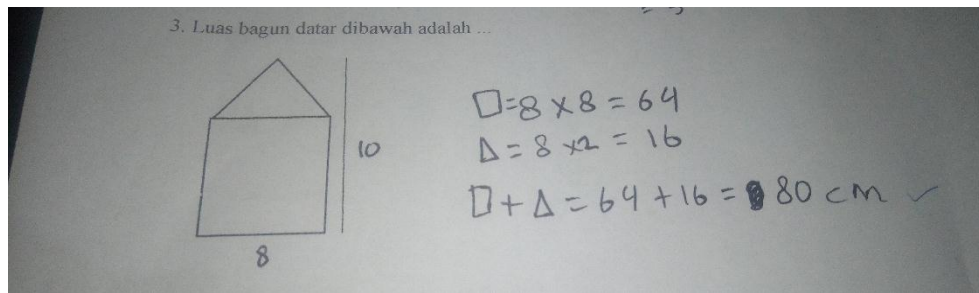 3. Luas bagun datar dibawah adalah ...
10
8
□=8 x 8 = 64
Δ = 8 x2 = 16
□+Δ = 64 + 16 = 80 cm ✓